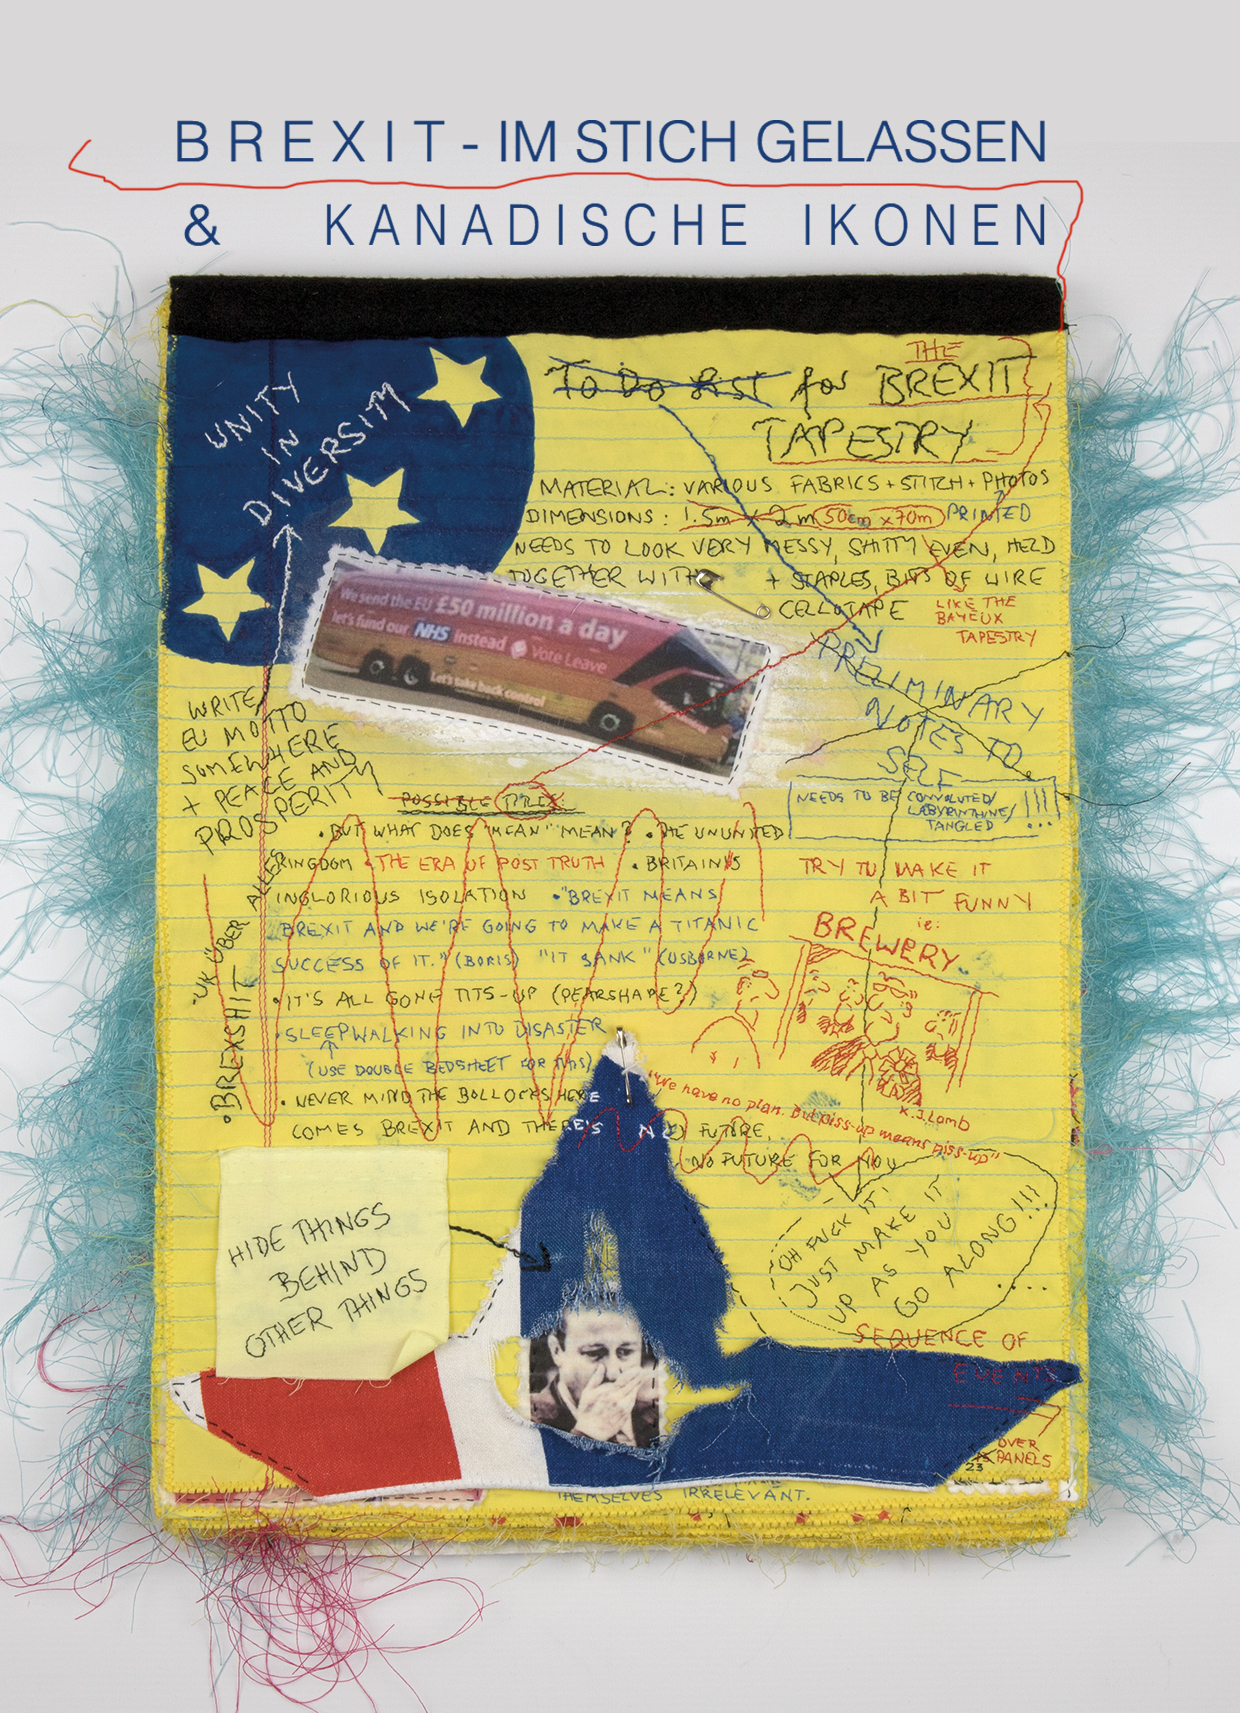 BREXIT - IM STICH GELASSEN
& KANADISCHE IKONEN
UNITY
IN
DIVERSITY
To Do List for THE BREXIT
TAPESTRY
MATERIAL: VARIOUS FABRICS + STITCH + PHOTOS
DIMENSIONS: 1.5m X 2m 50cm x 70m PRINTED
NEEDS TO LOOK VERY MESSY, SHITTY EVEN, HELD
TOGETHER WITH + STAPLES, BITS OF WIRE
CELLOTAPE
LIKE THE
BAYEUX
TAPESTRY
We send the EU £50 million a day
let's fund our NHS instead Vote Leave
Let's take back control
PRELIMINARY
NOTES TO
SELF
WRITE
EU MOTTO
SOMEWHERE
+ PEACE AND
PROSPERITY
NEEDS TO BE CONVOLUTED/
LABYRINTHINE/
TANGLED
!!!!
...
POSSIBLE TITLES
• BUT WHAT DOES "MEAN" MEAN? • THE UNUNITED
KINGDOM • THE ERA OF POST TRUTH • BRITAIN'S
INGLORIOUS ISOLATION • "BREXIT MEANS
BREXIT AND WE'RE GOING TO MAKE A TITANIC
SUCCESS OF IT." (BORIS) "IT SANK" (OSBORNE)
• IT'S ALL GONE TITS-UP (PEARSHAPE?)
• SLEEPWALKING INTO DISASTER
(USE DOUBLE BEDSHEET FOR THIS)
• NEVER MIND THE BOLLOCKS HERE
COMES BREXIT AND THERE'S NO FUTURE,
NO FUTURE FOR YOU
• BREXSHIT
• "UK" ÜBER ALLES
TRY TO MAKE IT
A BIT FUNNY
ie:
BREWERY
"We have no plan. But piss-up means piss-up"
X.J. Lomb
OH FUCK IT!
JUST MAKE IT
UP AS YOU
GO ALONG!!!
....
HIDE THINGS
BEHIND
OTHER THINGS
SEQUENCE OF
EVENTS
OVER
23 PANELS
THEMSELVES IRRELEVANT.